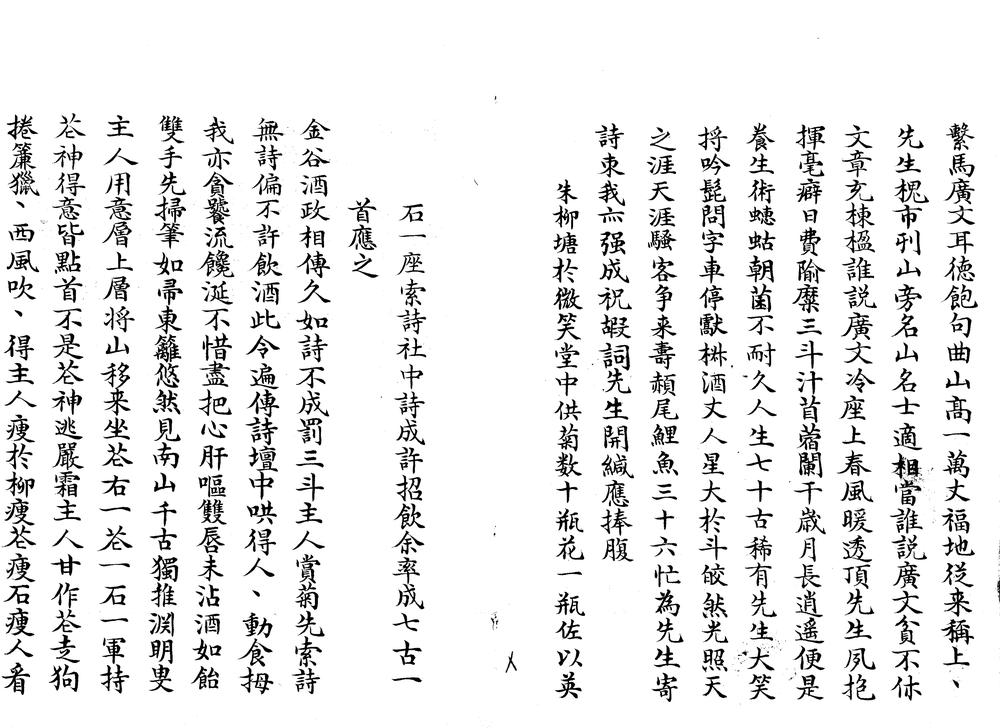 繫馬廣文耳德飽句曲山高一萬丈福地從来稱上、
先生槐市刊山旁名山名士適相當誰說廣文貧不休
文章充棟楹誰説廣文冷座上春風暖透頂先生夙抱
揮毫癖日費隃糜三斗汁首蓿闌干歲月長逍遥便是
飬生術蟪蛄朝菌不耐久人生七十古稀有先生大笑
捋吟髭問字車停獻楙酒丈人星大於斗皎然光照天
之涯天涯騷客争来壽赬尾鯉魚三十六忙為先生寄
詩柬我亦强成祝嘏詞先生開緘應捧腹
朱柳塘於微笑堂中供菊数十瓶花一瓶佐以英
石一座索詩社中詩成許招飲余率成七古一
首應之
金谷酒政相傳久如詩不成罰三斗主人賞菊先索詩
無詩偏不許飲酒此令遍傳詩壇中哄得人、動食拇
我亦貪饕流饞涎不惜盡把心肝嘔雙唇未沾酒如飴
雙手先掃筆如帚東籬悠然見南山千古獨推淵明叟
主人用意層上層将山移来坐苍右一苍一石一軍持
苍神得意皆點首不是苍神逃嚴霜主人甘作苍走狗
捲簾獵、西風吹、得主人瘦於柳瘦苍瘦石瘦人看